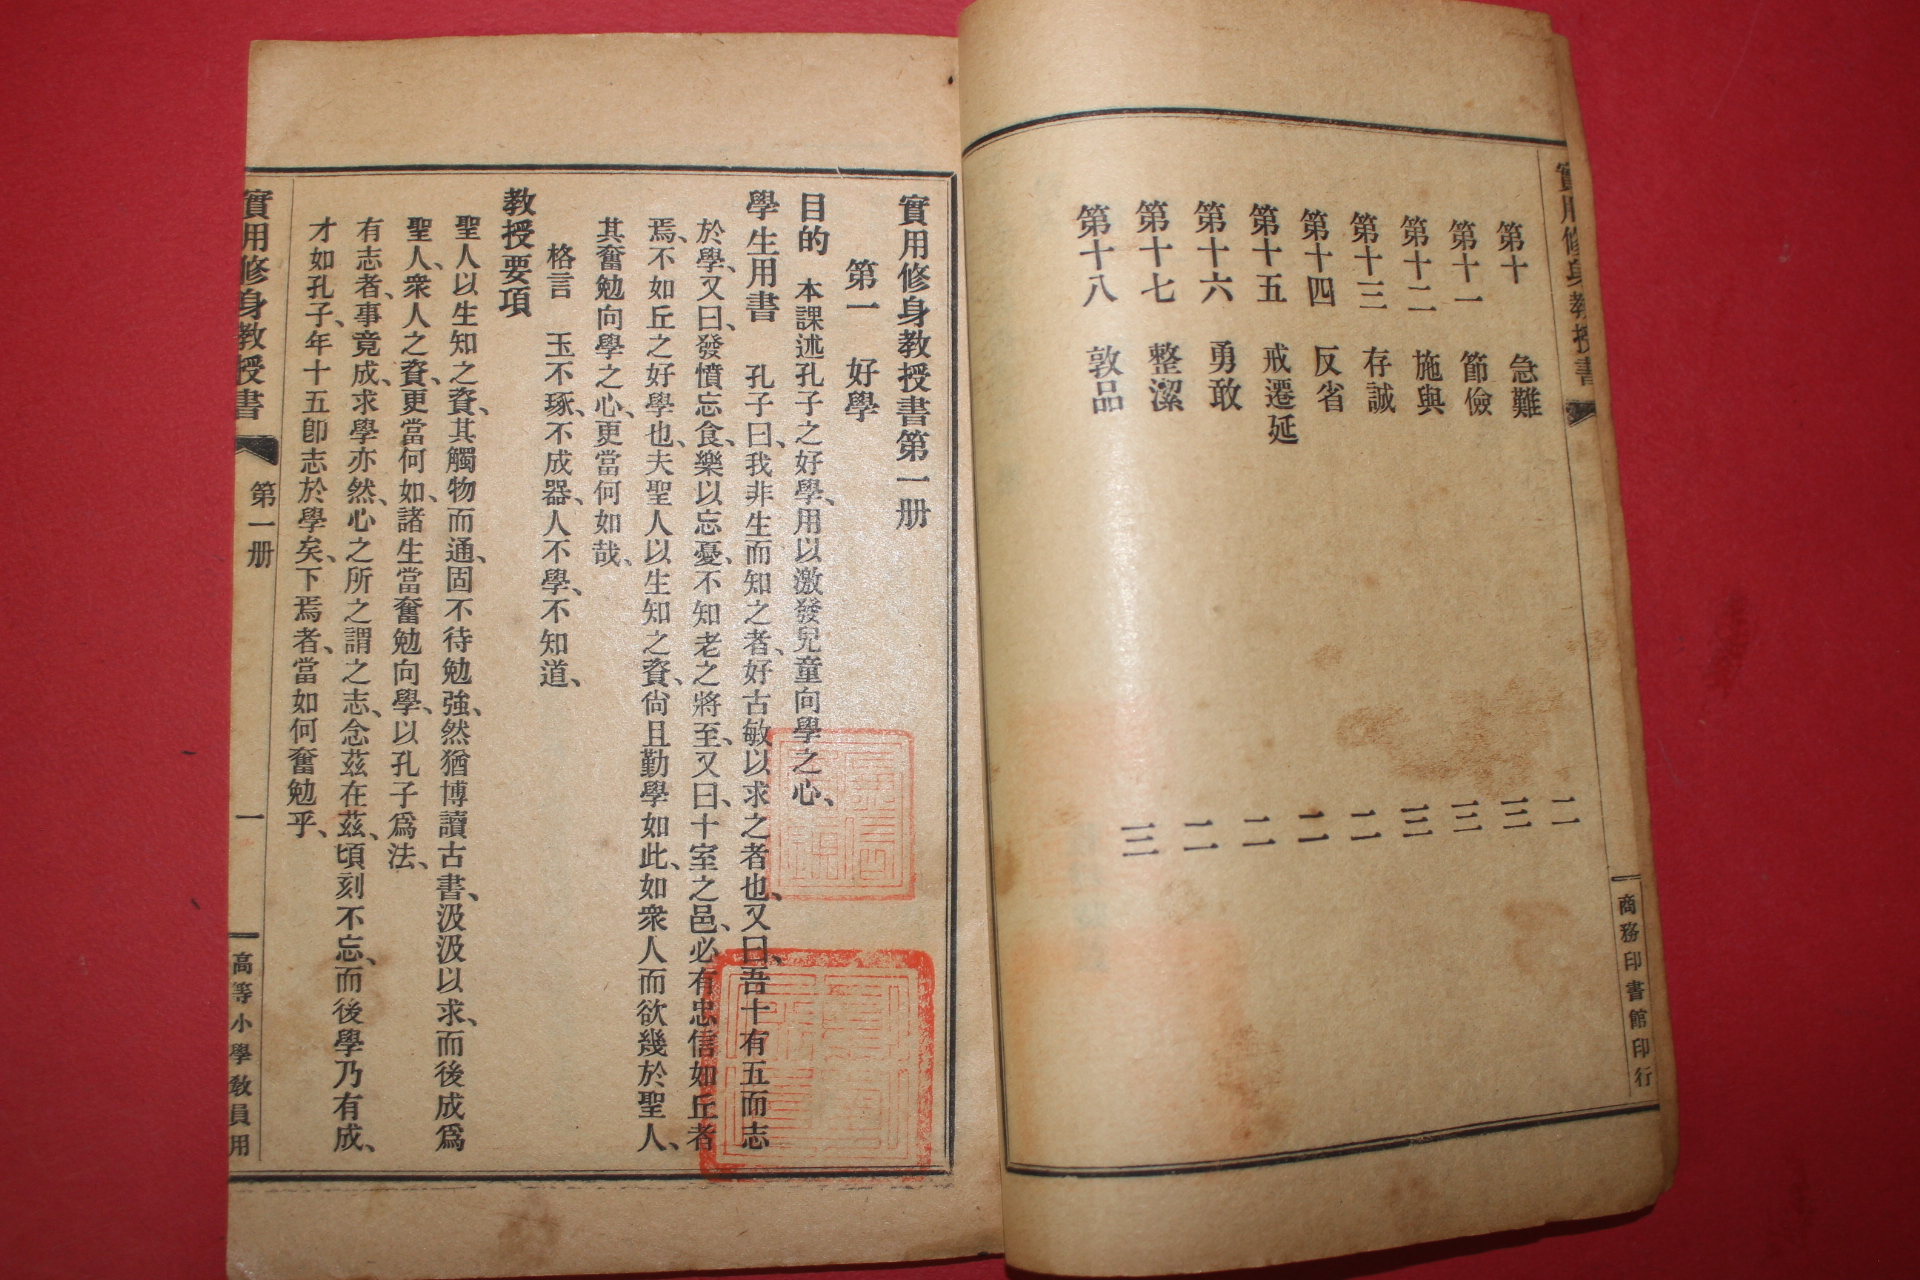 實用修身教授書
商務印書館印行
第十 急難 二
第十一 節儉 三
第十二 施與 三
第十三 存誠 三
第十四 反省 二
第十五 戒遷延 二
第十六 勇敢 二
第十七 整潔 二
第十八 敦品 三
實用修身教授書第一册
第一 好學
目的 本課述孔子之好學、用以激發兒童向學之心、
學生用書 孔子曰、我非生而知之者、好古敏以求之者也、又曰、吾十有五而志
於學、又曰、發憤忘食、樂以忘憂、不知老之將至、又曰、十室之邑、必有忠信如丘者
焉、不如丘之好學也、夫聖人以生知之資、尙且勤學如此、如衆人而欲幾於聖人、
其奮勉向學之心、更當何如哉、
格言 玉不琢、不成器、人不學、不知道、
教授要項
聖人以生知之資、其觸物而通、固不待勉強、然猶博讀古書、汲汲以求、而後成爲
聖人、衆人之資、更當何如、諸生當奮勉向學、以孔子爲法、
有志者、事竟成、求學亦然、心之所之謂之志、念茲在茲、頃刻不忘、而後學乃有成、
才如孔子、年十五卽志於學矣、下焉者、當如何奮勉乎、
實用修身教授書 第一册 一 高等小學教員用